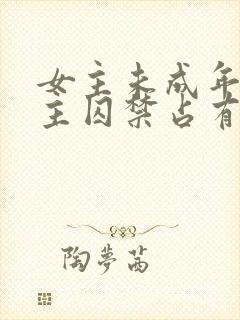 女主未成年
主囚禁占有
陶夢茜